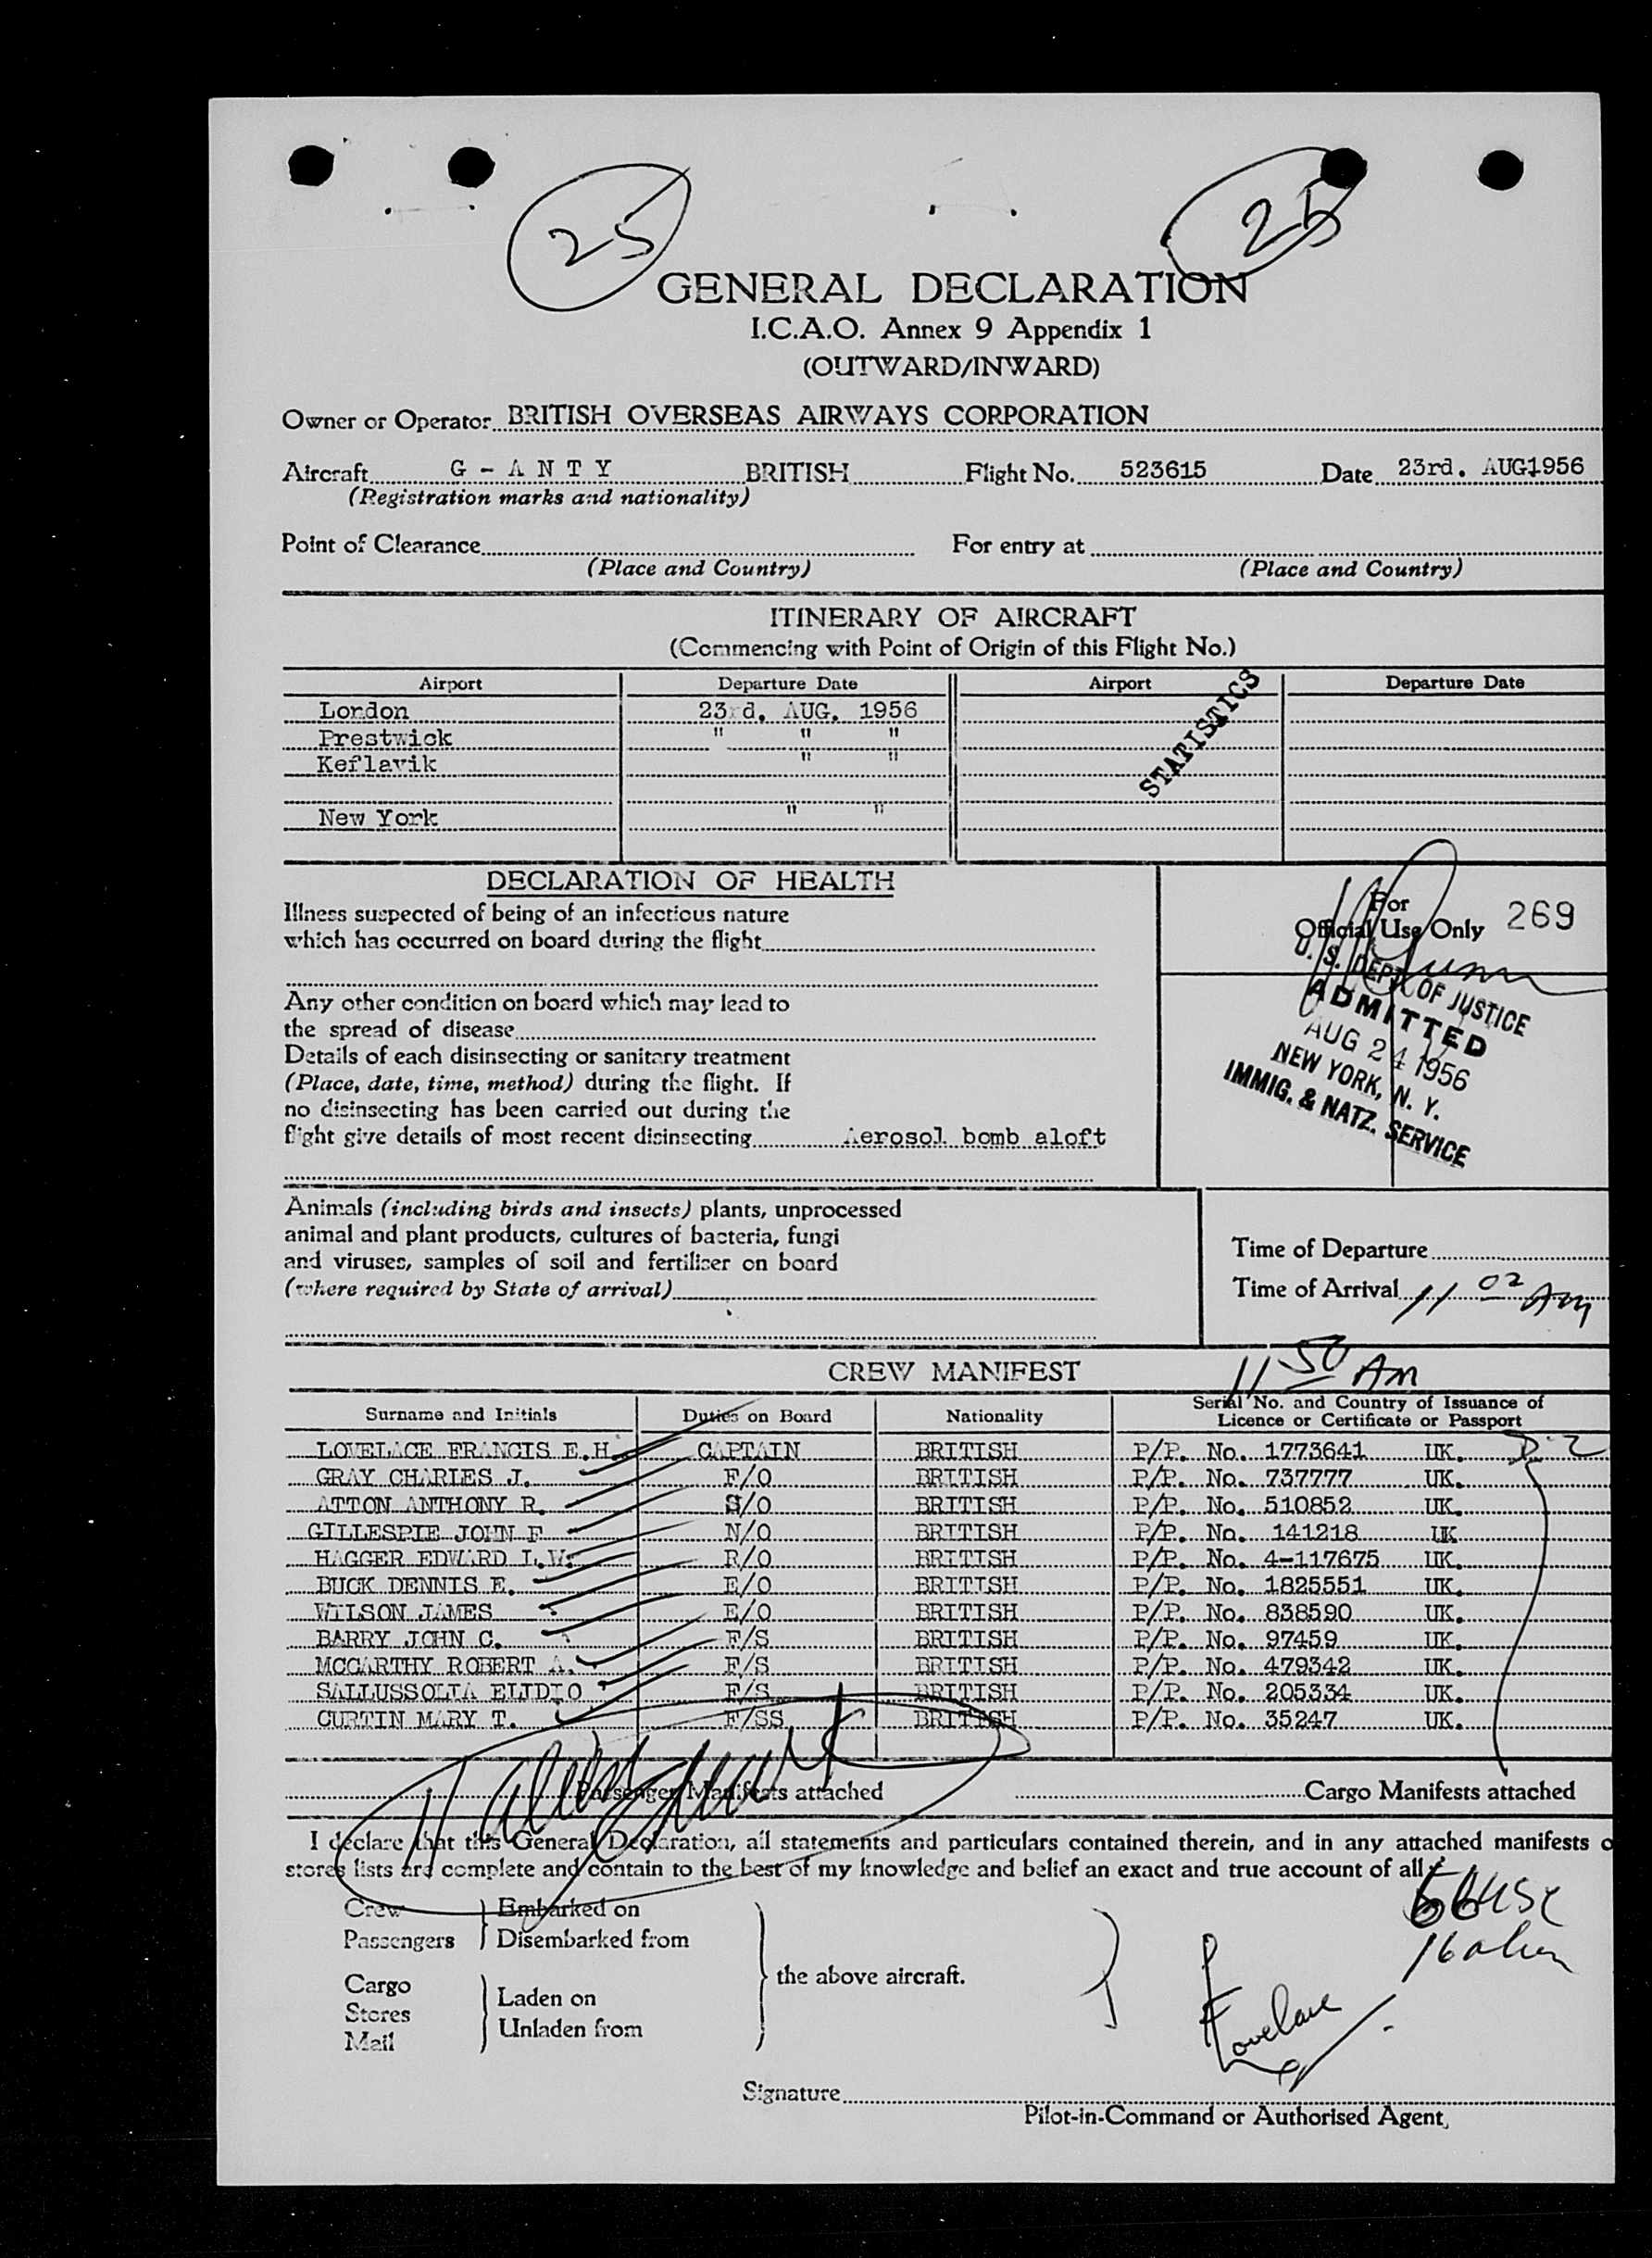 25
25
GENERAL DECLARATION
I.C.A.O. Annex 9 Appendix 1
(OUTWARD/INWARD)
Owner or Operator BRITISH OVERSEAS AIRWAYS CORPORATION
Aircraft G - A N T Y BRITISH Flight No. 523615 Date 23rd. AUG1956
(Registration marks and nationality)
Point of Clearance For entry at
(Place and Country) (Place and Country)
ITINERARY OF AIRCRAFT
(Commencing with Point of Origin of this Flight No.)
Airport Departure Date Airport Departure Date
London 23rd. AUG. 1956
Prestwick " " "
Keflavik " "
New York " "
STATISTICS
DECLARATION OF HEALTH
Illness suspected of being of an infectious nature
which has occurred on board during the flight
Any other condition on board which may lead to
the spread of disease
Details of each disinsecting or sanitary treatment
(Place, date, time, method) during the flight. If
no disinsecting has been carried out during the
flight give details of most recent disinsecting Aerosol bomb aloft
For
Official Use Only 269
U. S. DEPT. OF JUSTICE
ADMITTED
AUG 24 1956
NEW YORK, N. Y.
IMMIG. & NATZ. SERVICE
Animals (including birds and insects) plants, unprocessed
animal and plant products, cultures of bacteria, fungi
and viruses, samples of soil and fertiliser on board
(where required by State of arrival)
Time of Departure
Time of Arrival 11 02 AM
11 50 AM
CREW MANIFEST
Surname and Initials Duties on Board Nationality Serial No. and Country of Issuance of
Licence or Certificate or Passport
LOVELACE FRANCIS E.H. CAPTAIN BRITISH P/P. No. 1773641 UK.
GRAY CHARLES J. F/O BRITISH P/P. No. 737777 UK.
ATTON ANTHONY R. S/O BRITISH P/P. No. 510852 UK.
GILLESPIE JOHN F N/O BRITISH P/P. No. 141218 UK
HAGGER EDWARD L.W. R/O BRITISH P/P. No. 4-117675 UK.
BUCK DENNIS E. E/O BRITISH P/P. No. 1825551 UK.
WILSON JAMES E/O BRITISH P/P. No. 838590 UK.
BARRY JOHN C. F/S BRITISH P/P. No. 97459 UK.
MCCARTHY ROBERT A. F/S BRITISH P/P. No. 479342 UK.
SALLUSSOLIA ELIDIO F/S BRITISH P/P. No. 205334 UK.
CURTIN MARY T. F/SS BRITISH P/P. No. 35247 UK.
Passenger Manifests attached Cargo Manifests attached
I declare that this General Declaration, all statements and particulars contained therein, and in any attached manifests
stores lists are complete and contain to the best of my knowledge and belief an exact and true account of all
Crew Embarked on
Passengers Disembarked from
the above aircraft.
Cargo
Stores
Mail
Laden on
Unladen from
Lovelace
Signature
Pilot-in-Command or Authorised Agent,